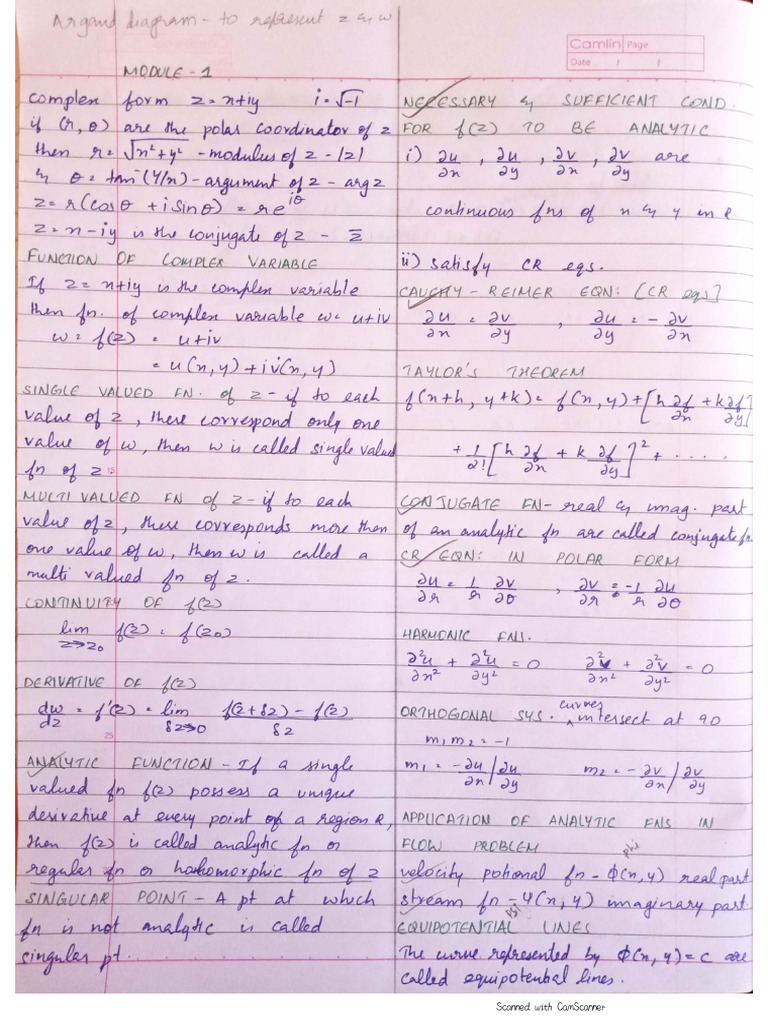 Argand diagram - to represent z & w
Camlin Page
Date / /
MODULE - 1
Complex form z = x+iy i = √-1
if (r, θ) are the polar coordinator of z
then r = √x²+y² - modulus of z - |z|
& θ = tan⁻¹(y/x) - argument of z - arg z
z = r(cosθ + i sinθ) = re^iθ
z = x-iy is the conjugate of z - z̅
FUNCTION OF COMPLEX VARIABLE
If z = x+iy is the complex variable
then fn. of complex variable w = u+iv
w = f(z) = u+iv
= u(x,y) + iv(x,y)
SINGLE VALUED FN. of z - if to each
value of z, there correspond only one
value of w, then w is called single valued
fn of z
MULTI VALUED FN of z - if to each
value of z, there corresponds more then
one value of w, then w is called a
multi valued fn of z.
CONTINUITY OF f(z)
lim z→z₀ f(z) = f(z₀)
DERIVATIVE OF f(z)
dw/dz = f'(z) = lim δz→0 f(z+δz) - f(z) / δz
25
ANALYTIC FUNCTION - If a single
valued fn f(z) possess a unique
derivative at every point of a region R,
then f(z) is called analytic fn or
regular fn or holomorphic fn of z
SINGULAR POINT - A pt at which
fn is not analytic is called
singular pt.
NECESSARY & SUFFICIENT COND.
FOR f(z) TO BE ANALYTIC
i) ∂u/∂x , ∂u/∂y , ∂v/∂x , ∂v/∂y are
continuous fns of x & y in R
ii) satisfy CR eqs.
CAUCHY - REIMER EQN: [CR eqs]
∂u/∂x = ∂v/∂y , ∂u/∂y = -∂v/∂x
TAYLOR'S THEOREM
f(x+h, y+k) = f(x,y) + [h ∂f/∂x + k ∂f/∂y]
+ 1/2! [h ∂f/∂x + k ∂f/∂y]² + .....
CONJUGATE FN - real & imag. part
of an analytic fn are called conjugate fn.
CR EQN: IN POLAR FORM
∂u/∂r = 1/r ∂v/∂θ , ∂v/∂r = -1/r ∂u/∂θ
HARMONIC FNS.
∂²u/∂x² + ∂²u/∂y² = 0 ∂²v/∂x² + ∂²v/∂y² = 0
ORTHOGONAL SYS. curves intersect at 90
m₁m₂ = -1
m₁ = -∂u/∂x / ∂u/∂y m₂ = -∂v/∂x / ∂v/∂y
APPLICATION OF ANALYTIC FNS IN
FLOW PROBLEM
phi
velocity potional fn - Φ(x,y) real part
stream fn - Ψ(x,y) imaginary part.
psi
EQUIPOTENTIAL LINES
The curve represented by Φ(x,y) = c are
called equipotential lines.
Scanned with CamScanner